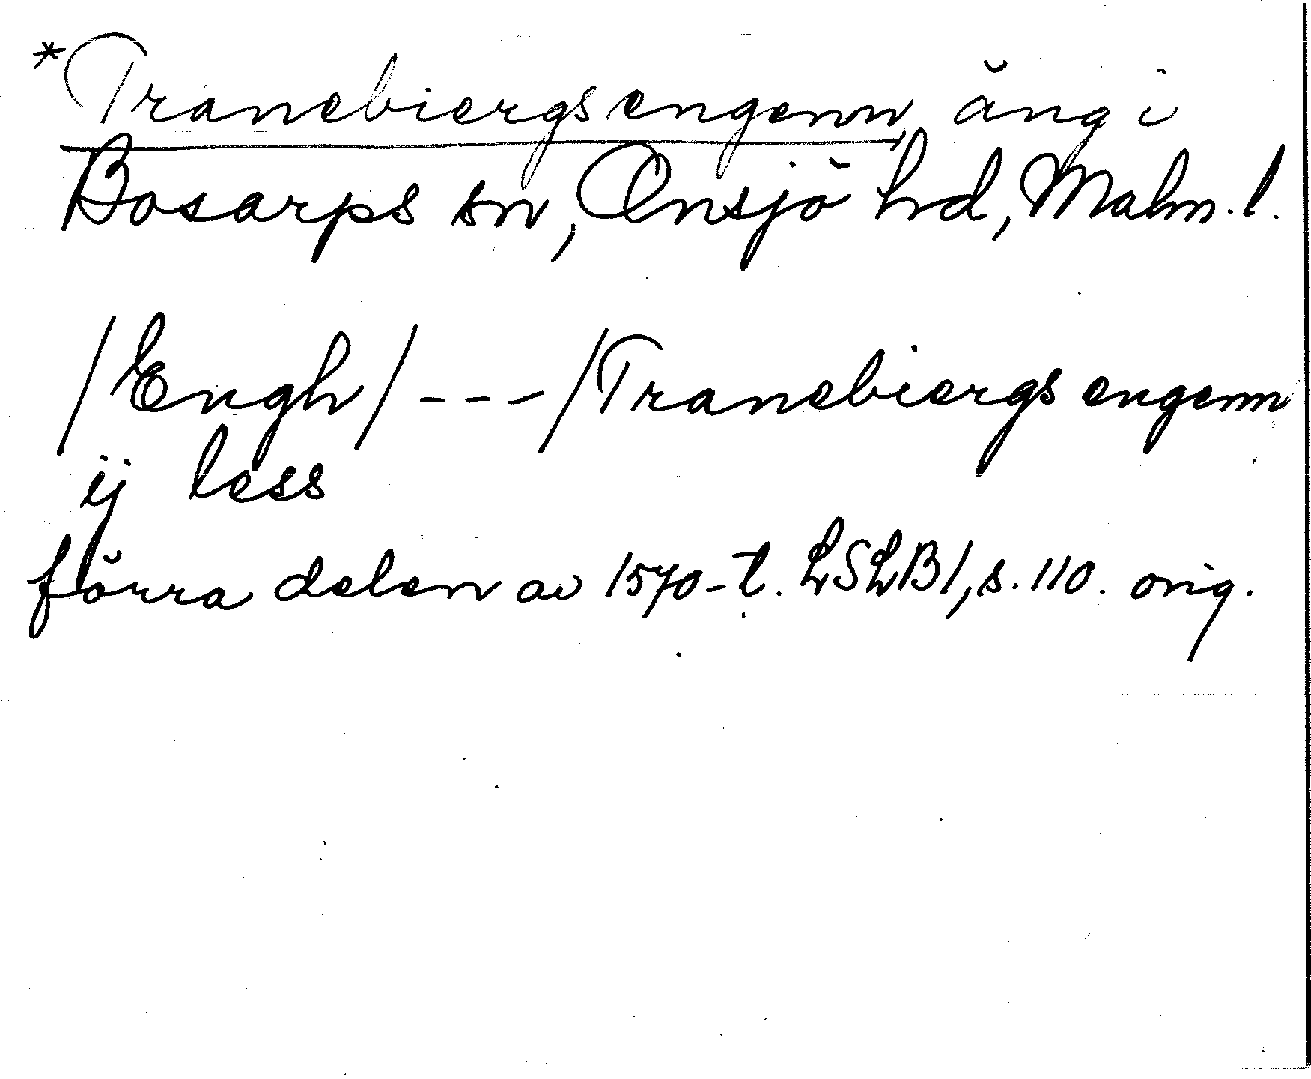 *Tranebiergsengenn äng i
Bosarps sn, Onsjö hd, Malm. l.
/Engh/ --- /Tranebiergs engenn
ij less
förra delen av 1570-t. LSLB1, s. 110. orig.